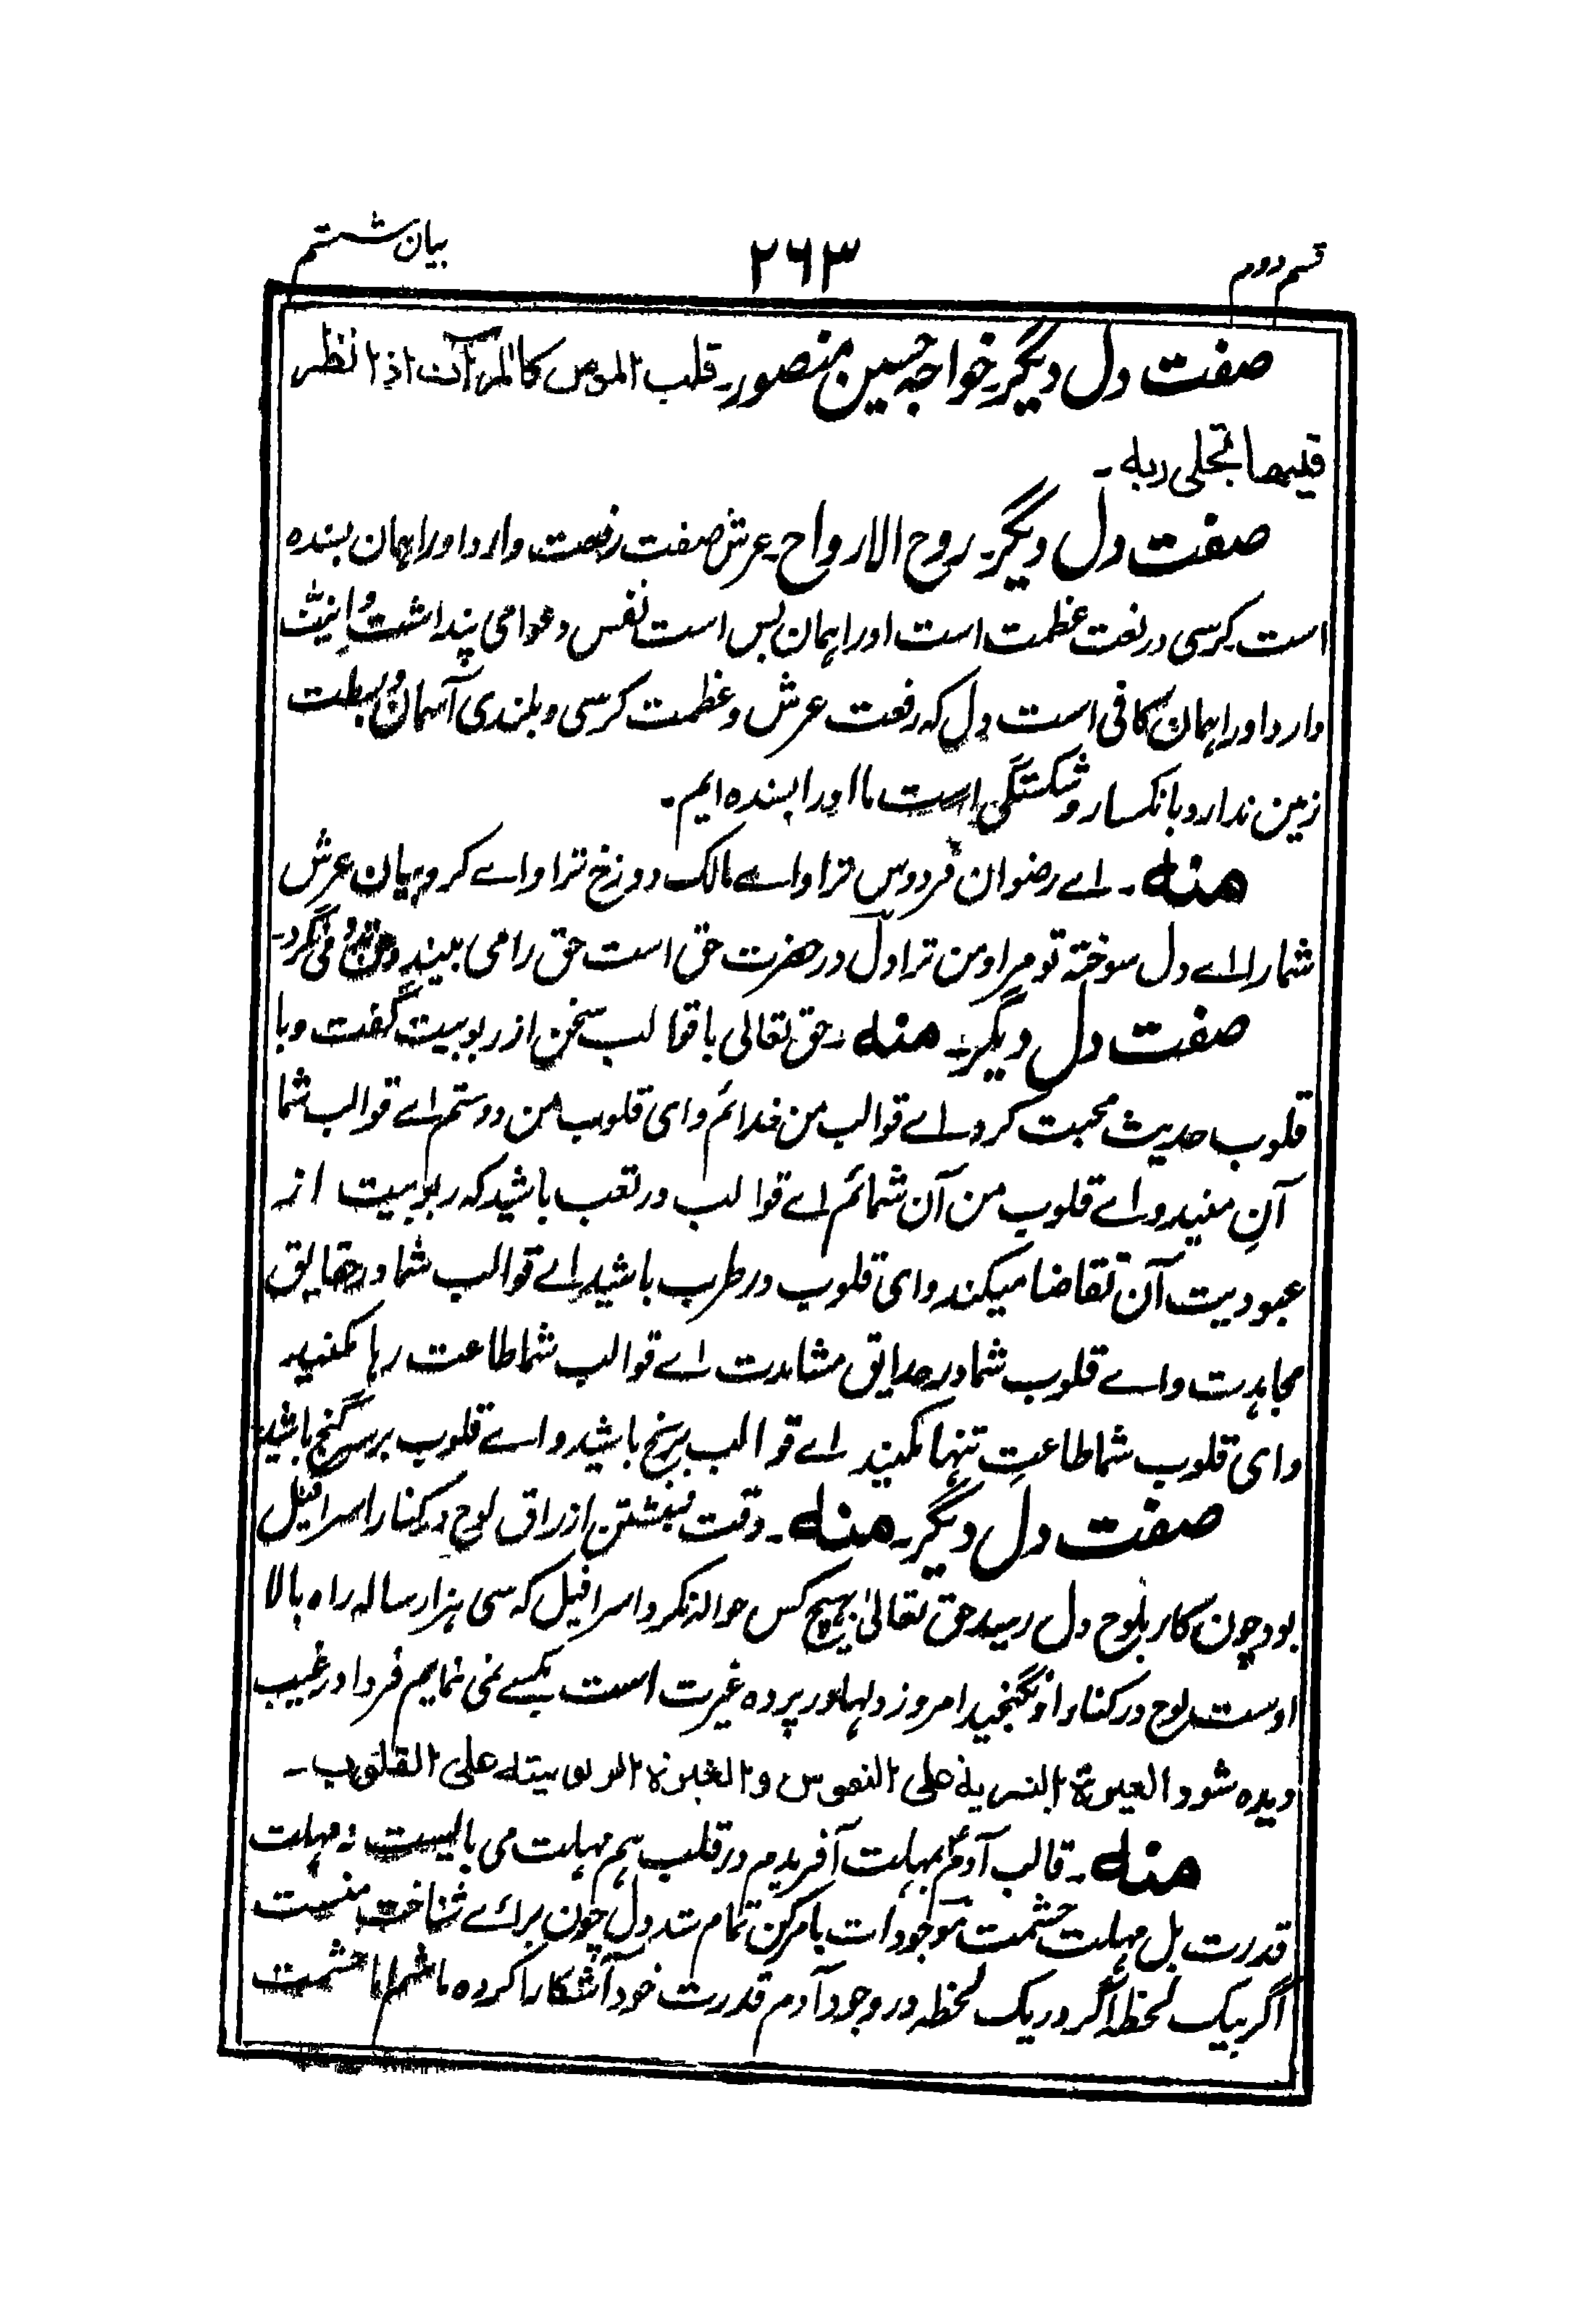 قسم دوم ۲۶۳ بیان ششتم
صفت دل دیگر۔ خواجہ حسین منصور۔ قلب المومن کالمرآت اذا نظر
فیھا تجلی ربہ۔
صفت دل دیگر۔ روح الارواح۔ عرش صفت رفعت دارد اورا ہمان بسندہ
است کرسی در نعت عظمت است اورا ہمان بس است نفس دعوامی پنداشت و انیت
دارد اورا ہمان کافی است دل کہ رفعت عرش و عظمت کرسی و بلندی آسمان و بسطت
زمین ندارد بانکسار و شکستگی است ما اورا بسندہ ایم۔
منہ۔ اے رضوان فردوس ترا و اے مالک دوزخ ترا و اے کروبیان عرش
شمارا اے دل سوختہ تو مرا و من ترا دل در حضرت حق است حق را می بیند
صفت دل دیگر۔ منہ۔ حق تعالی با قوالب سخن از ربوبیت گفت و با
قلوب حدیث محبت کرد۔ اے قوالب من خدائم و ای قلوب من دوستم اے قوالب شما
آنِ منید و اے قلوب من آن شمائم اے قوالب در تعب باشید کہ ربوبیت از
عبودیت آن تقاضا میکند و ای قلوب در طرب باشید اے قوالب شما در حقایق
مجاہدت و اے قلوب شما در حدایق مشاہدت اے قوالب شما طاعت رہا مکنید
و ای قلوب شما طاعتِ تنہا مکنید اے قوالب برنج باشید و اے قلوب بر سر گنج باشید
صفت دل دیگر۔ منہ۔ وقت نبشتن ازراق لوح در کنار اسرافیل
بود چون کار بلوح دل رسید حق تعالیٰ بہیچ کس حوالہ نکرد اسرافیل کہ سی ہزار سالہ راہ بالا
اوست لوح در کنار او نگنجید امروز دلہا در پردہ غیرت است بکسے نمی نمایم فردا در غیب
دیدہ شود الغیرۃ البشریۃ علی النفوس و الغیرۃ الربوبیتہ علی القلوب۔
منہ۔ قالب آدم بمہلت آفریدم در قلب ہم مہلت می بالیست نہ مہلت
قدرت بل مہلت حشمت موجودات بامر کن تمام شد دل چون برائے شناخت منست
اگر بیک لحظہ اگر در یک لحظہ در وجود آدم قدرت خود آشکارا کردہ باشم اما حشمت